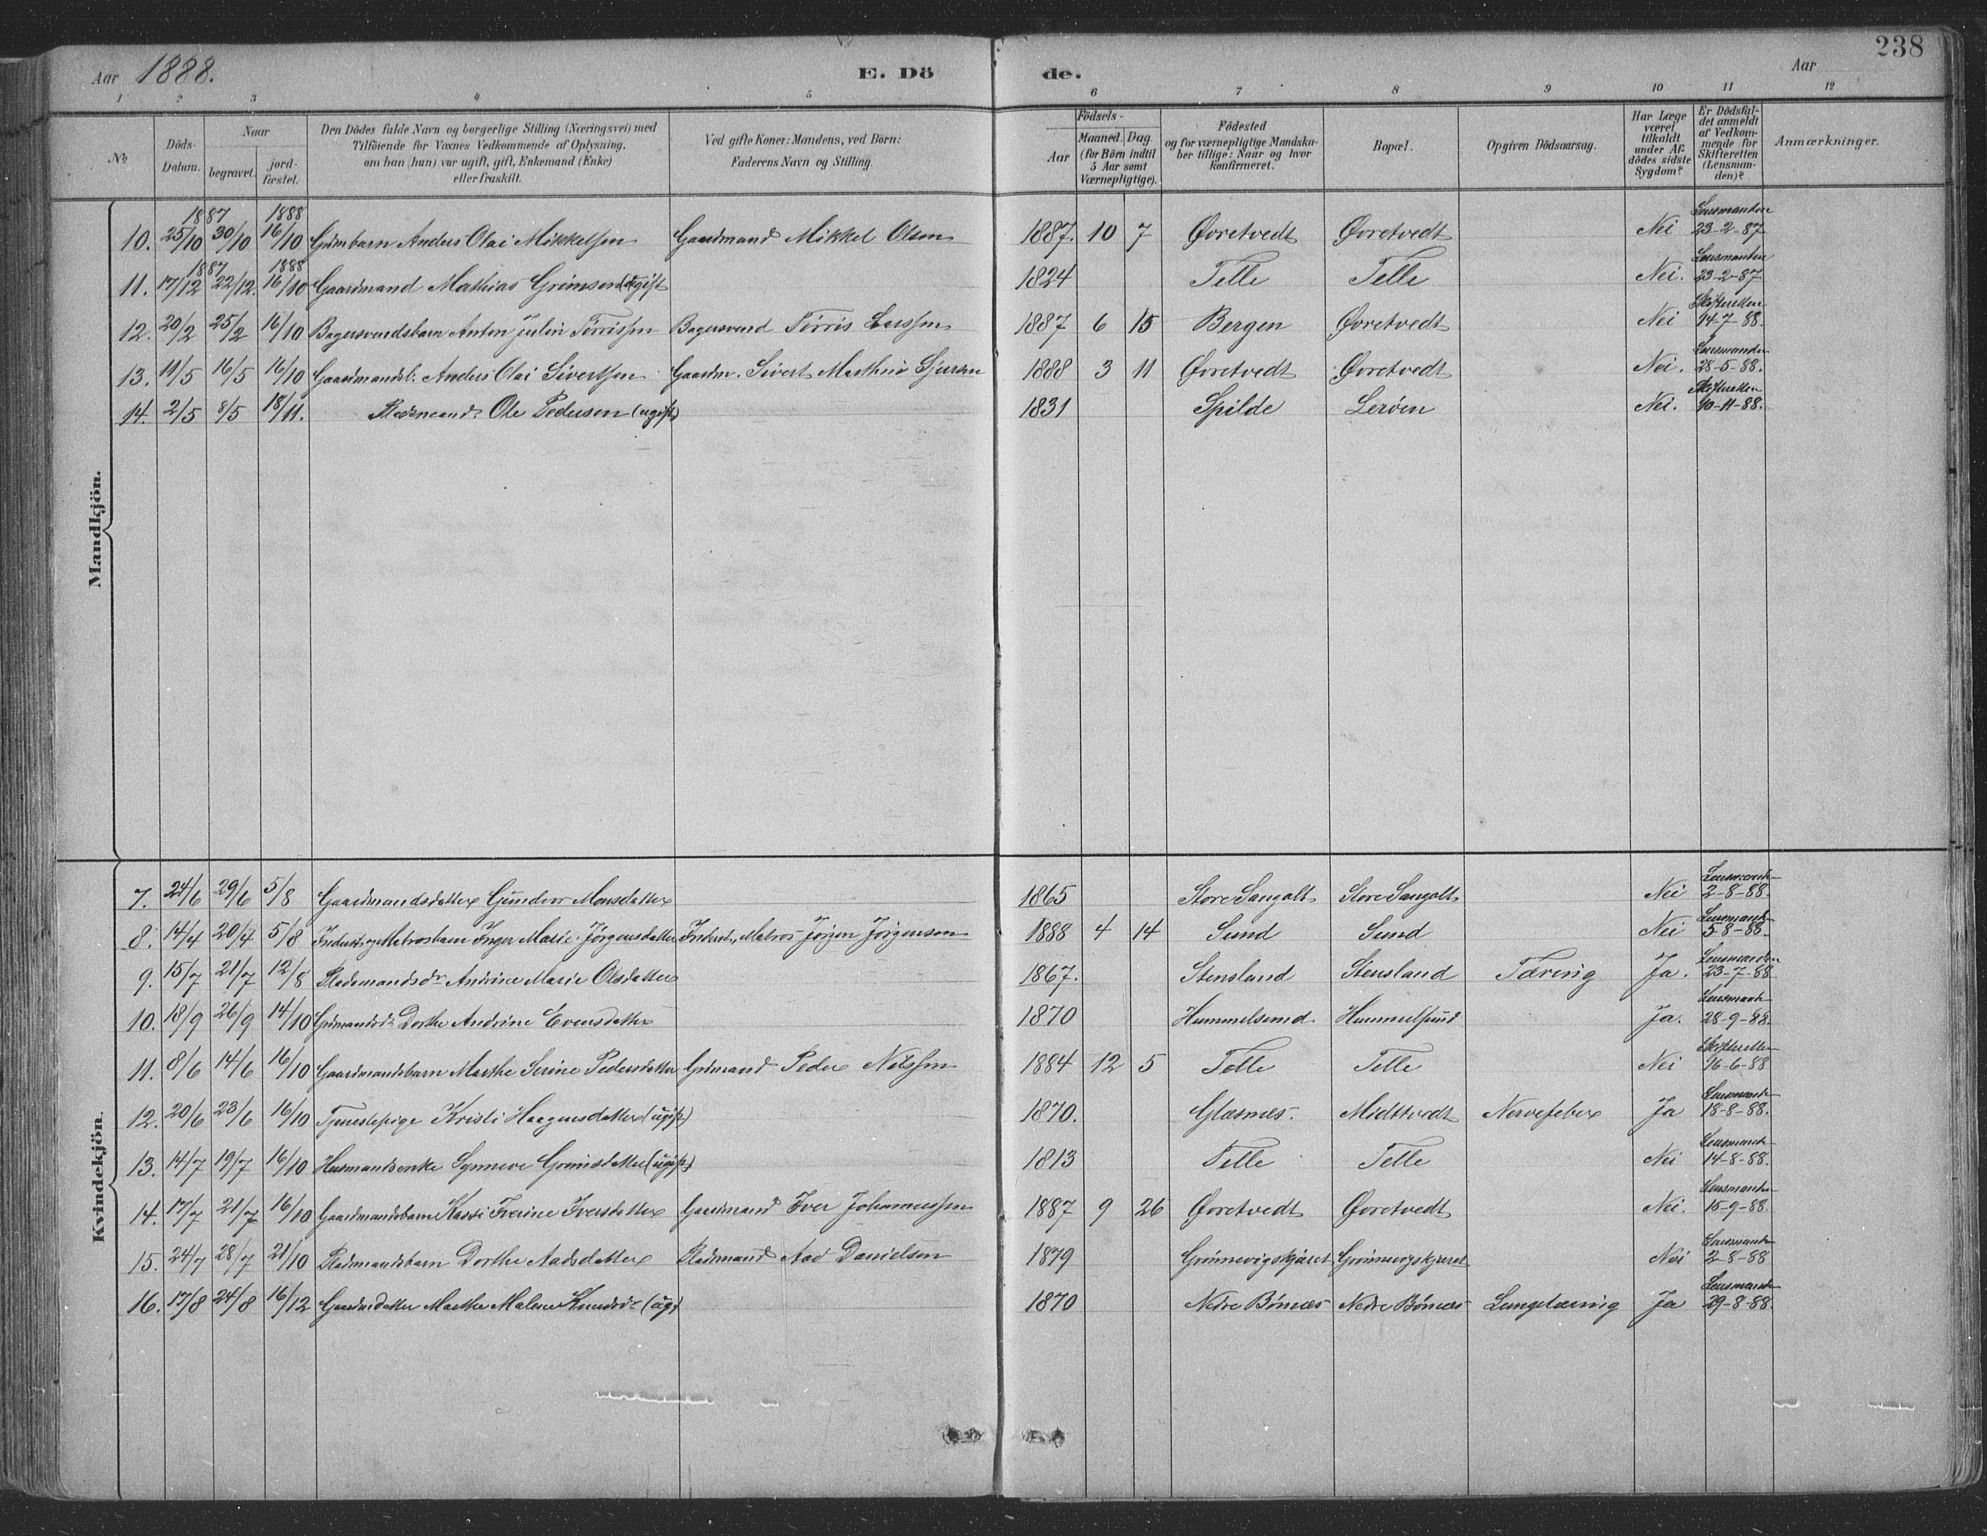 Aar 1888.
E. Dö
de.
Aar
238
1 2 3 4 5 6 7 8 9 10 11 12
№
Döds-Datum.
Naar
begravet.
jord-fæstet.
Den Dödes fulde Navn og borgerlige Stilling (Næringsvei) med
Tilföiende for Voxnes Vedkommende af Oplysning,
om han (hun) var ugift, gift, Enkemand (Enke)
eller fraskilt.
Ved gifte Koner: Mandens, ved Börn:
Faderens Navn og Stilling.
Födsels-
Aar
Maaned. Dag
(for Börn indtil
5 Aar samt
Værnepligtige).
Födested
og for værnepligtige Mandska-
ber tillige: Naar og hvor
Konfirmeret.
Bopæl.
Opgiven Dödsaarsag.
Har Læge
været
tilkaldt
under Af-
dödes sidste
Sygdom?
Er Dödsfal-
det anmeldt
af Vedkom-
mende for
Skifteretten
(Lensman-
den)?
Anmærkninger.
Mandkjön.
1887 1888 Lensmanden
10. 25/10 30/10 16/10 Grdmbarn Anders Olai Mikkelsen Gaardmand Mikkel Olsen 1887. 10 7 Øvretvedt Øvretvedt Nei 23-2-87
1887 1888 Lensmanden
11. 17/12 22/12. 16/10 Gaardmand Mathias Grimsen (ugift 1824 Telle Telle Nei. 23-2-87
Skifteretten
12. 20/2 25/2 16/10 Bagersvendsbarn Anton Julin Tørrissen Bagersvend Tørris Larssen 1887 6 15 Bergen Øvretvedt Nei 14-7-88.
Lensmanden
13. 11/5 16/5 16/10 Gaardmandsb. Anders Olai Sivertsen Gaardm. Sivert Mathias Sjursen 1888 3 11 Øvretvedt Øvretvedt Nei. 28-5-88.
Skifteretten
14. 2/5 8/5 18/11. Pladsmand Ole Pedersen (ugift) 1831 Spilde Lerøen Nei. 10-11-88.
Kvindekjön.
7. 24/6 29/6 5/8 Gaardmandsdatter Gundvor Monsdatter 1865 Store Sangolt Store Sangolt Nei 2-8-88.
8. 14/4 20/4 5/8 Inger Marie Jørgensdatter Matros Jørgen Jørgensen 1888 4 14 Sund Sund Nei 5-8-88.
Lensmanden
9. 15/7 21/7 12/8 Pladsmandsdr Andrine Marie Olsdatter 1867. Stensland Stensland Tæring Ja. 23-7-88
10. 18/9 26/9 14/10 Grdmandsdr Dorthe Andrine Eversdatter 1870 Hummelsund Hummelsund Ja. 28-9-88.
Skifteretten
11. 8/6 14/6 16/10 Gaardmandsbarn Marthe Serine Pedersdatter Grdmand Peder Nilssen 1884 12 5 Telle Telle Nei 16-6-88
12. 20/6 23/6 16/10 Tjenestepige Kristi Haagensdatter (ugift) 1870. Glæsnæs. Midttvedt Nervefeber Ja 18-8-88.
13. 14/7 19/7 16/10 Husmandsenke Synneve Grimsdatter (ugift) 1813 Telle Telle Nei 14-8-88.
14. 17/7 21/7 16/10 Gaardmandsbarn Iversdatter Gaardmand Iver Johannessen 1887 9 26 Øvretvedt Øvretvedt Nei. 15-9-88.
15. 24/7 28/7 21/10 Pladsmandsbarn Dorthe Aadsdatter Pladsmand Aad Danielsen 1879 Grønnevigskjæret Grønnevigskjæret Nei 2-8-88
16. 17/8 24/8 16/12 Gaardmdatter Marthe Malene Knudsdr (ug.) 1870 Nedre Børnæs Nedre Børnæs Lungetæring Ja 29-8-88.